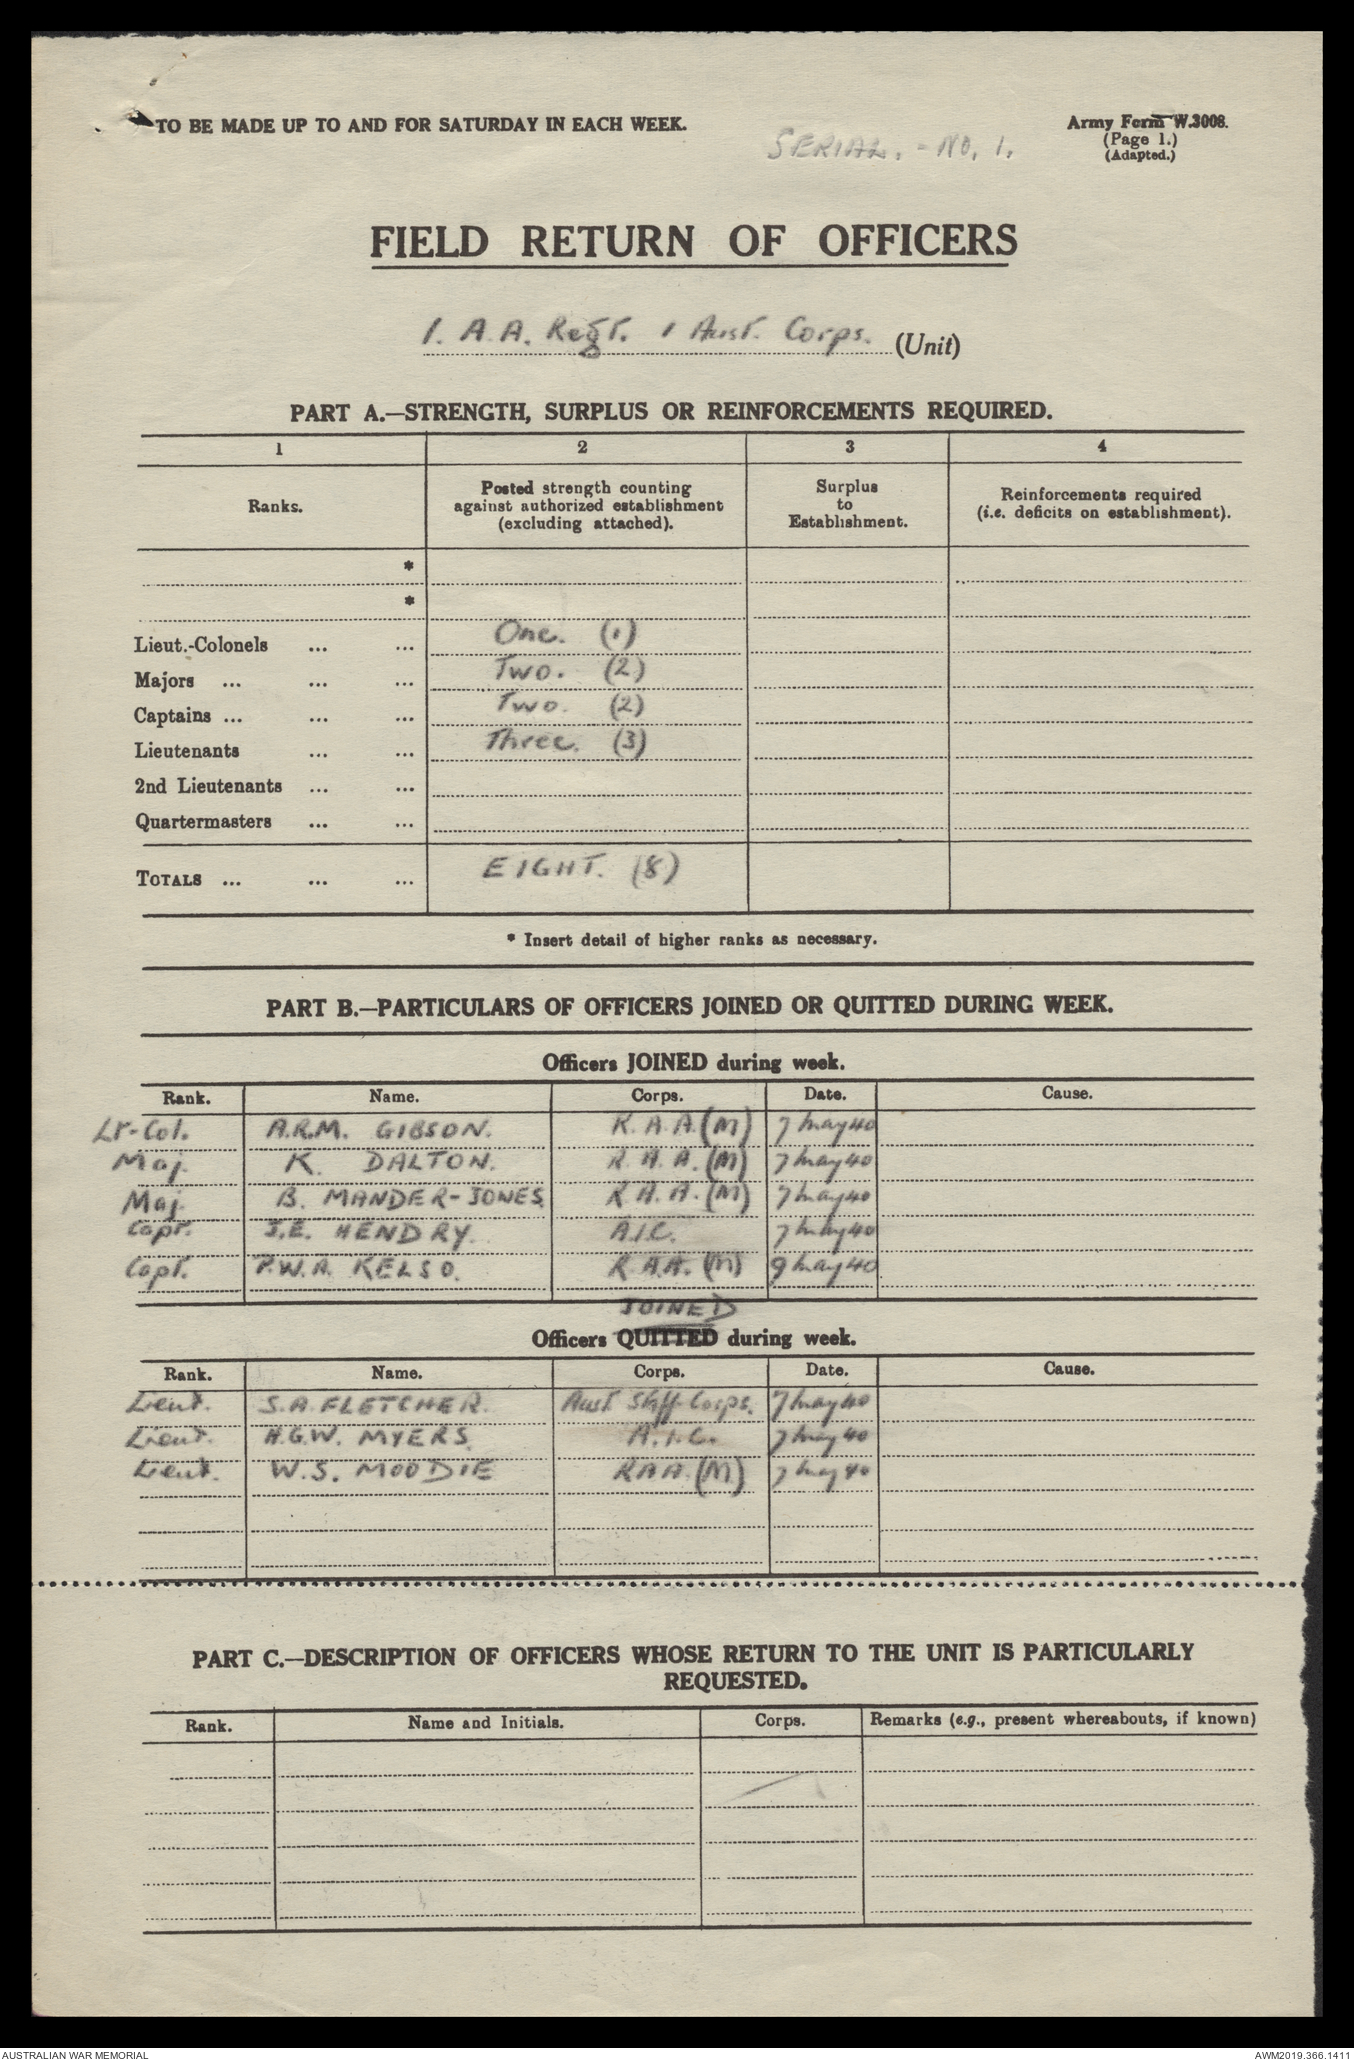 TO BE MADE UP TO AND FOR SATURDAY IN EACH WEEK.
Army Form W.3008.
(Page 1.)
(Adapted.)
SERIAL. - NO. 1.
FIELD RETURN OF OFFICERS
1. A.A. Regt. 1 Aust. Corps. (Unit)
PART A.—STRENGTH, SURPLUS OR REINFORCEMENTS REQUIRED.
1 2 3 4
Ranks. Posted strength counting against authorized establishment (excluding attached). Surplus to Establishment. Reinforcements required (i.e. deficits on establishment).
*
*
Lieut.-Colonels ... ... One. (1)
Majors ... ... ... Two. (2)
Captains ... ... ... Two. (2)
Lieutenants ... ... Three. (3)
2nd Lieutenants ... ...
Quartermasters ... ...
TOTALS ... ... ... EIGHT. (8)
* Insert detail of higher ranks as necessary.
PART B.—PARTICULARS OF OFFICERS JOINED OR QUITTED DURING WEEK.
Officers JOINED during week.
Rank. Name. Corps. Date. Cause.
Lt-Col. A.R.M. GIBSON. R.A.A.(M) 7 May 40
Maj. K. DALTON. R.A.A.(M) 7 May 40
Maj. B. MANDER-JONES. R.A.A.(M) 7 May 40
Capt. J.E. HENDRY. A.I.C. 7 May 40
Capt. P.W.A. KELSO. R.A.A.(M) 9 May 40
JOINED
Officers QUITTED during week.
Rank. Name. Corps. Date. Cause.
Lieut. S.A. FLETCHER. Aust Staff Corps. 7 May 40
Lieut. H.G.W. MYERS. A.I.C. 7 May 40
Lieut. W.S. MOODIE RAA.(M) 7 May 40
PART C.—DESCRIPTION OF OFFICERS WHOSE RETURN TO THE UNIT IS PARTICULARLY
REQUESTED.
Rank. Name and Initials. Corps. Remarks (e.g., present whereabouts, if known)
AUSTRALIAN WAR MEMORIAL
AWM2019.366.1411